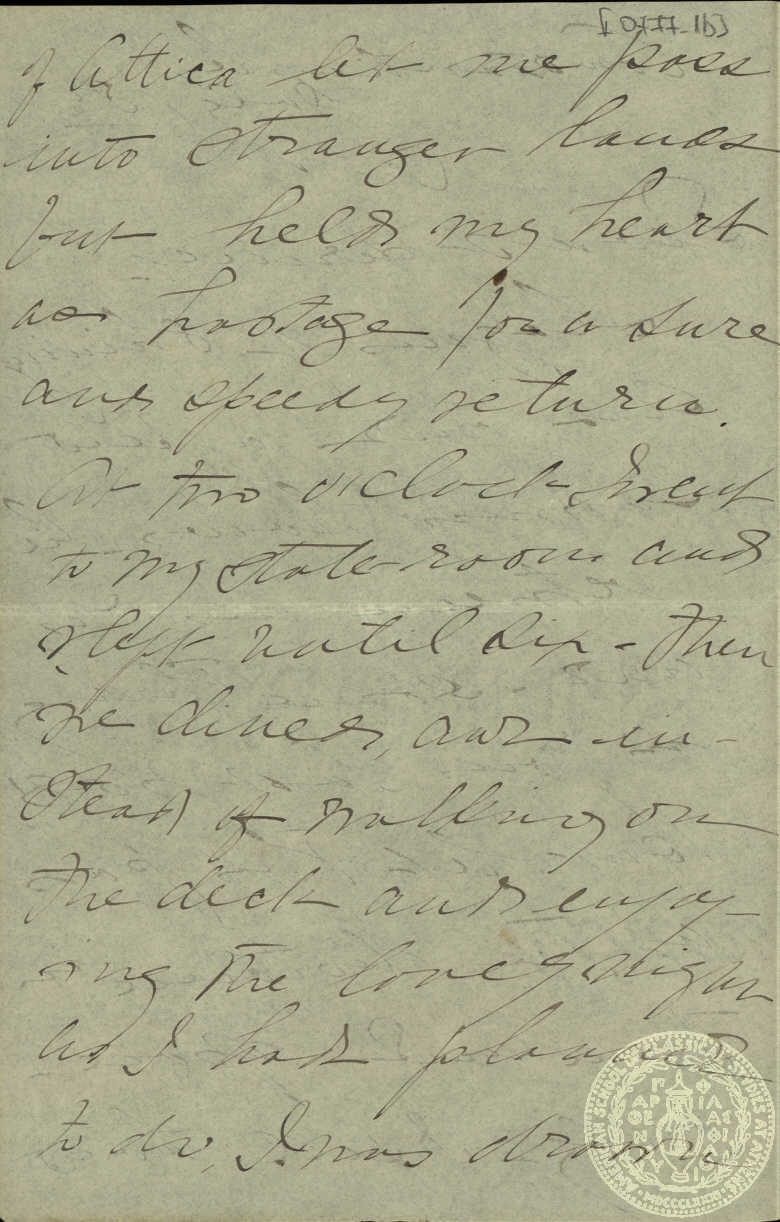 of Attica let me pass
into stranger lands
but held my heart
as hostage for a sure
and speedy return.
At two o'clock I went
to my state-room and
slept until six - then
we dined, and in-
stead of walking on
the deck and enjoy-
ing the lovely night
as I had planned
to do, I was drawn
AMERICAN SCHOOL OF CLASSICAL STUDIES AT ATHENS
ΠΑΡΘΕΝΟΥ ΦΙΛΑΣ ΦΙΛΟΙ
MDCCCLXXXI